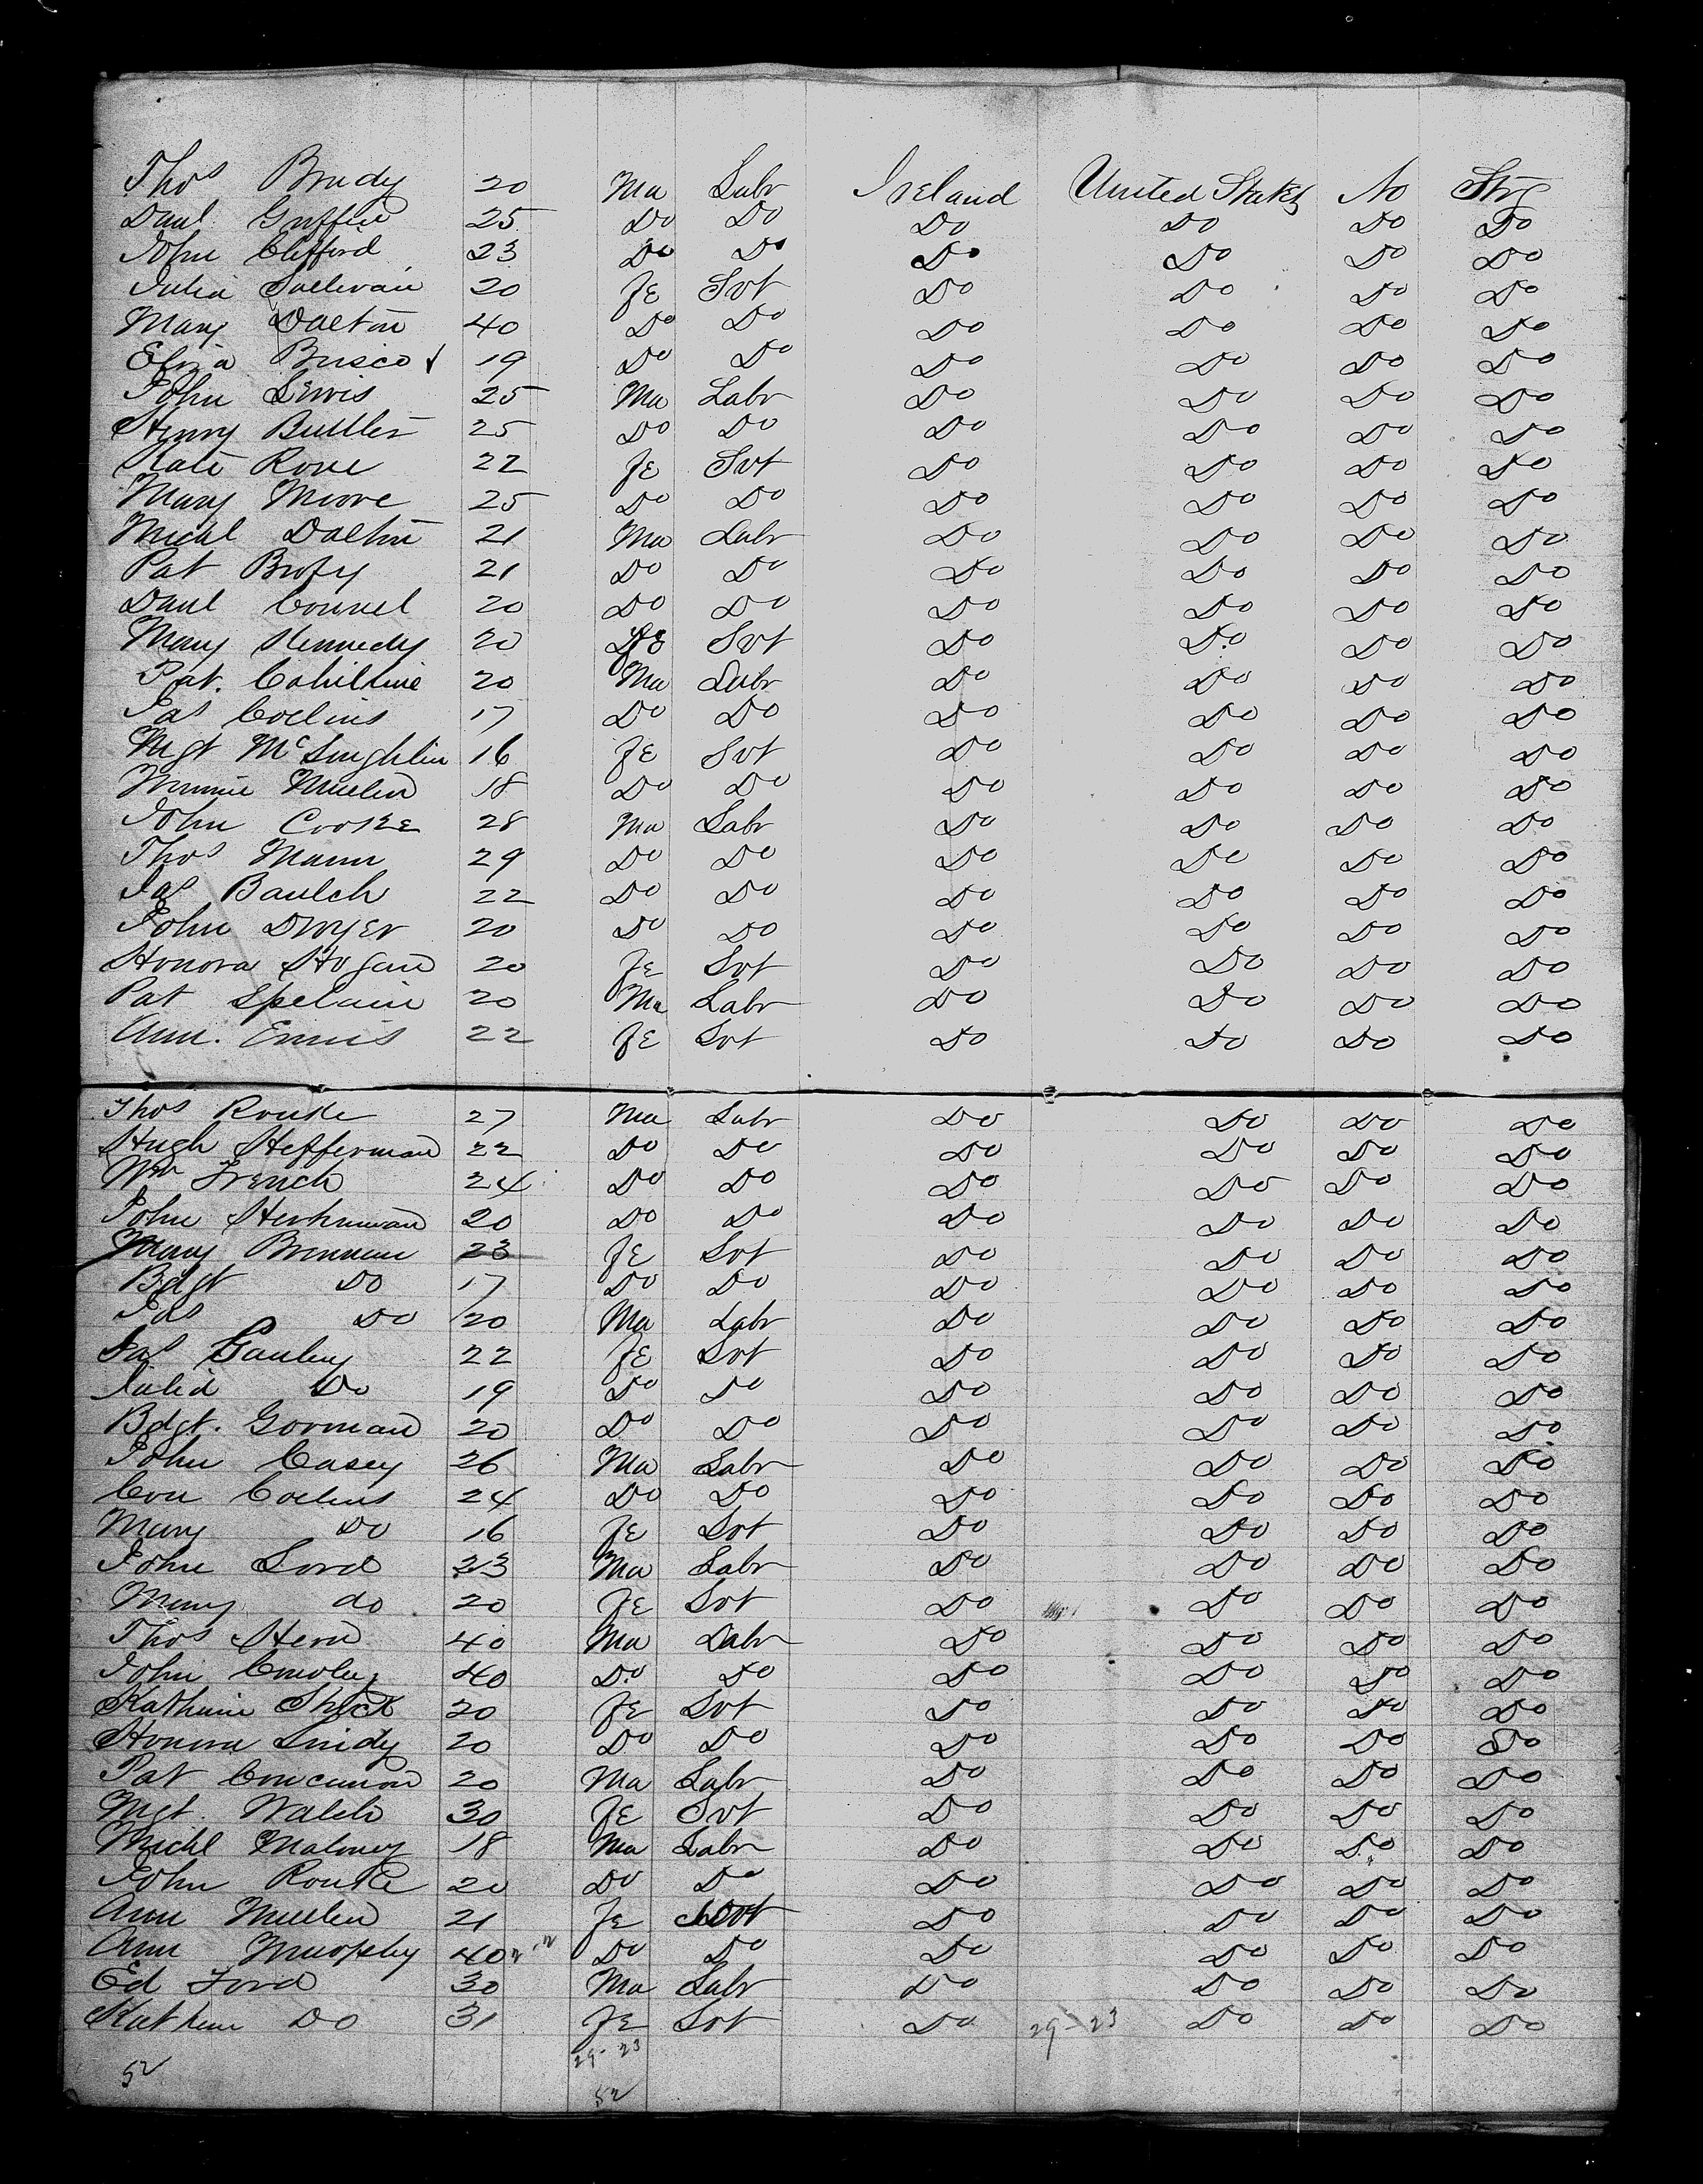 Thos Brady 20 Ma Labr Ireland United States No Strg
Danl Griffin 25 Do Do Do Do Do Do
John Clifford 23 Do Do Do Do Do Do
Julia Sullivan 20 Fe Svt Do Do Do Do
Mary Dalton 40 Do Do Do Do Do Do
Eliza Brisco 19 Do Do Do Do Do Do
John Lewis 25 Ma Labr Do Do Do Do
Henry Butler 25 Do Do Do Do Do Do
Kate 22 Fe Svt Do Do Do Do
Mary Moore 25 Do Do Do Do Do Do
Michl Dalton 21 Ma Labr Do Do Do Do
Pat 21 Do Do Do Do Do Do
Danl Connel 20 Do Do Do Do Do Do
Mary Kennedy 20 Fe Svt Do Do Do Do
Pat. 20 Ma Labr Do Do Do Do
Jas Collins 17 Do Do Do Do Do Do
Mgt McLoughlin 16 Fe Svt Do Do Do Do
Winnie Mullen 18 Do Do Do Do Do Do
John Cooke 28 Ma Labr Do Do Do Do
Thos Mann 29 Do Do Do Do Do Do
Jas Baulch 22 Do Do Do Do Do Do
John Dwyer 20 Do Do Do Do Do Do
Honora Hogan 20 Fe Svt Do Do Do Do
Pat Spelain 20 Ma Labr Do Do Do Do
Ann. Ennis 22 Fe Svt Do Do Do Do
Thos Rourke 27 Ma Labr Do Do Do Do
Hugh Hefferman 22 Do Do Do Do Do Do
Wm French 24 Do Do Do Do Do Do
John 20 Do Do Do Do Do Do
Mary Brennan 23 Fe Svt Do Do Do Do
Bdgt Do 17 Do Do Do Do Do Do
Jas Do 20 Ma Labr Do Do Do Do
Jas Gauley 22 Fe Svt Do Do Do Do
Julia Do 19 Do Do Do Do Do Do
Bdgt. Gorman 20 Do Do Do Do Do Do
John Casey 26 Ma Labr Do Do Do Do
Con Collins 24 Do Do Do Do Do Do
Mary Do 16 Fe Svt Do Do Do Do
John Lord 23 Ma Labr Do Do Do Do
Mary do 20 Fe Svt Do Do Do Do
Thos Hern 40 Ma Labr Do Do Do Do
John Crowley 40 Do Do Do Do Do Do
Kathrin 20 Fe Svt Do Do Do Do
Honora 20 Do Do Do Do Do Do
Pat Concannon 20 Ma Labr Do Do Do Do
Mgt. Walsh 30 Fe Svt Do Do Do Do
Michl Maloney 18 Ma Labr Do Do Do Do
John Rourke 20 Do Do Do Do Do Do
Ann Mullen 21 Fe Svt Do Do Do Do
Ann Murphy 40 Do Do Do Do Do Do
Ed Ford 30 Ma Labr Do Do Do Do
Kathrin Do 31 Fe Svt Do 29-23 Do Do Do
29-23
52
52